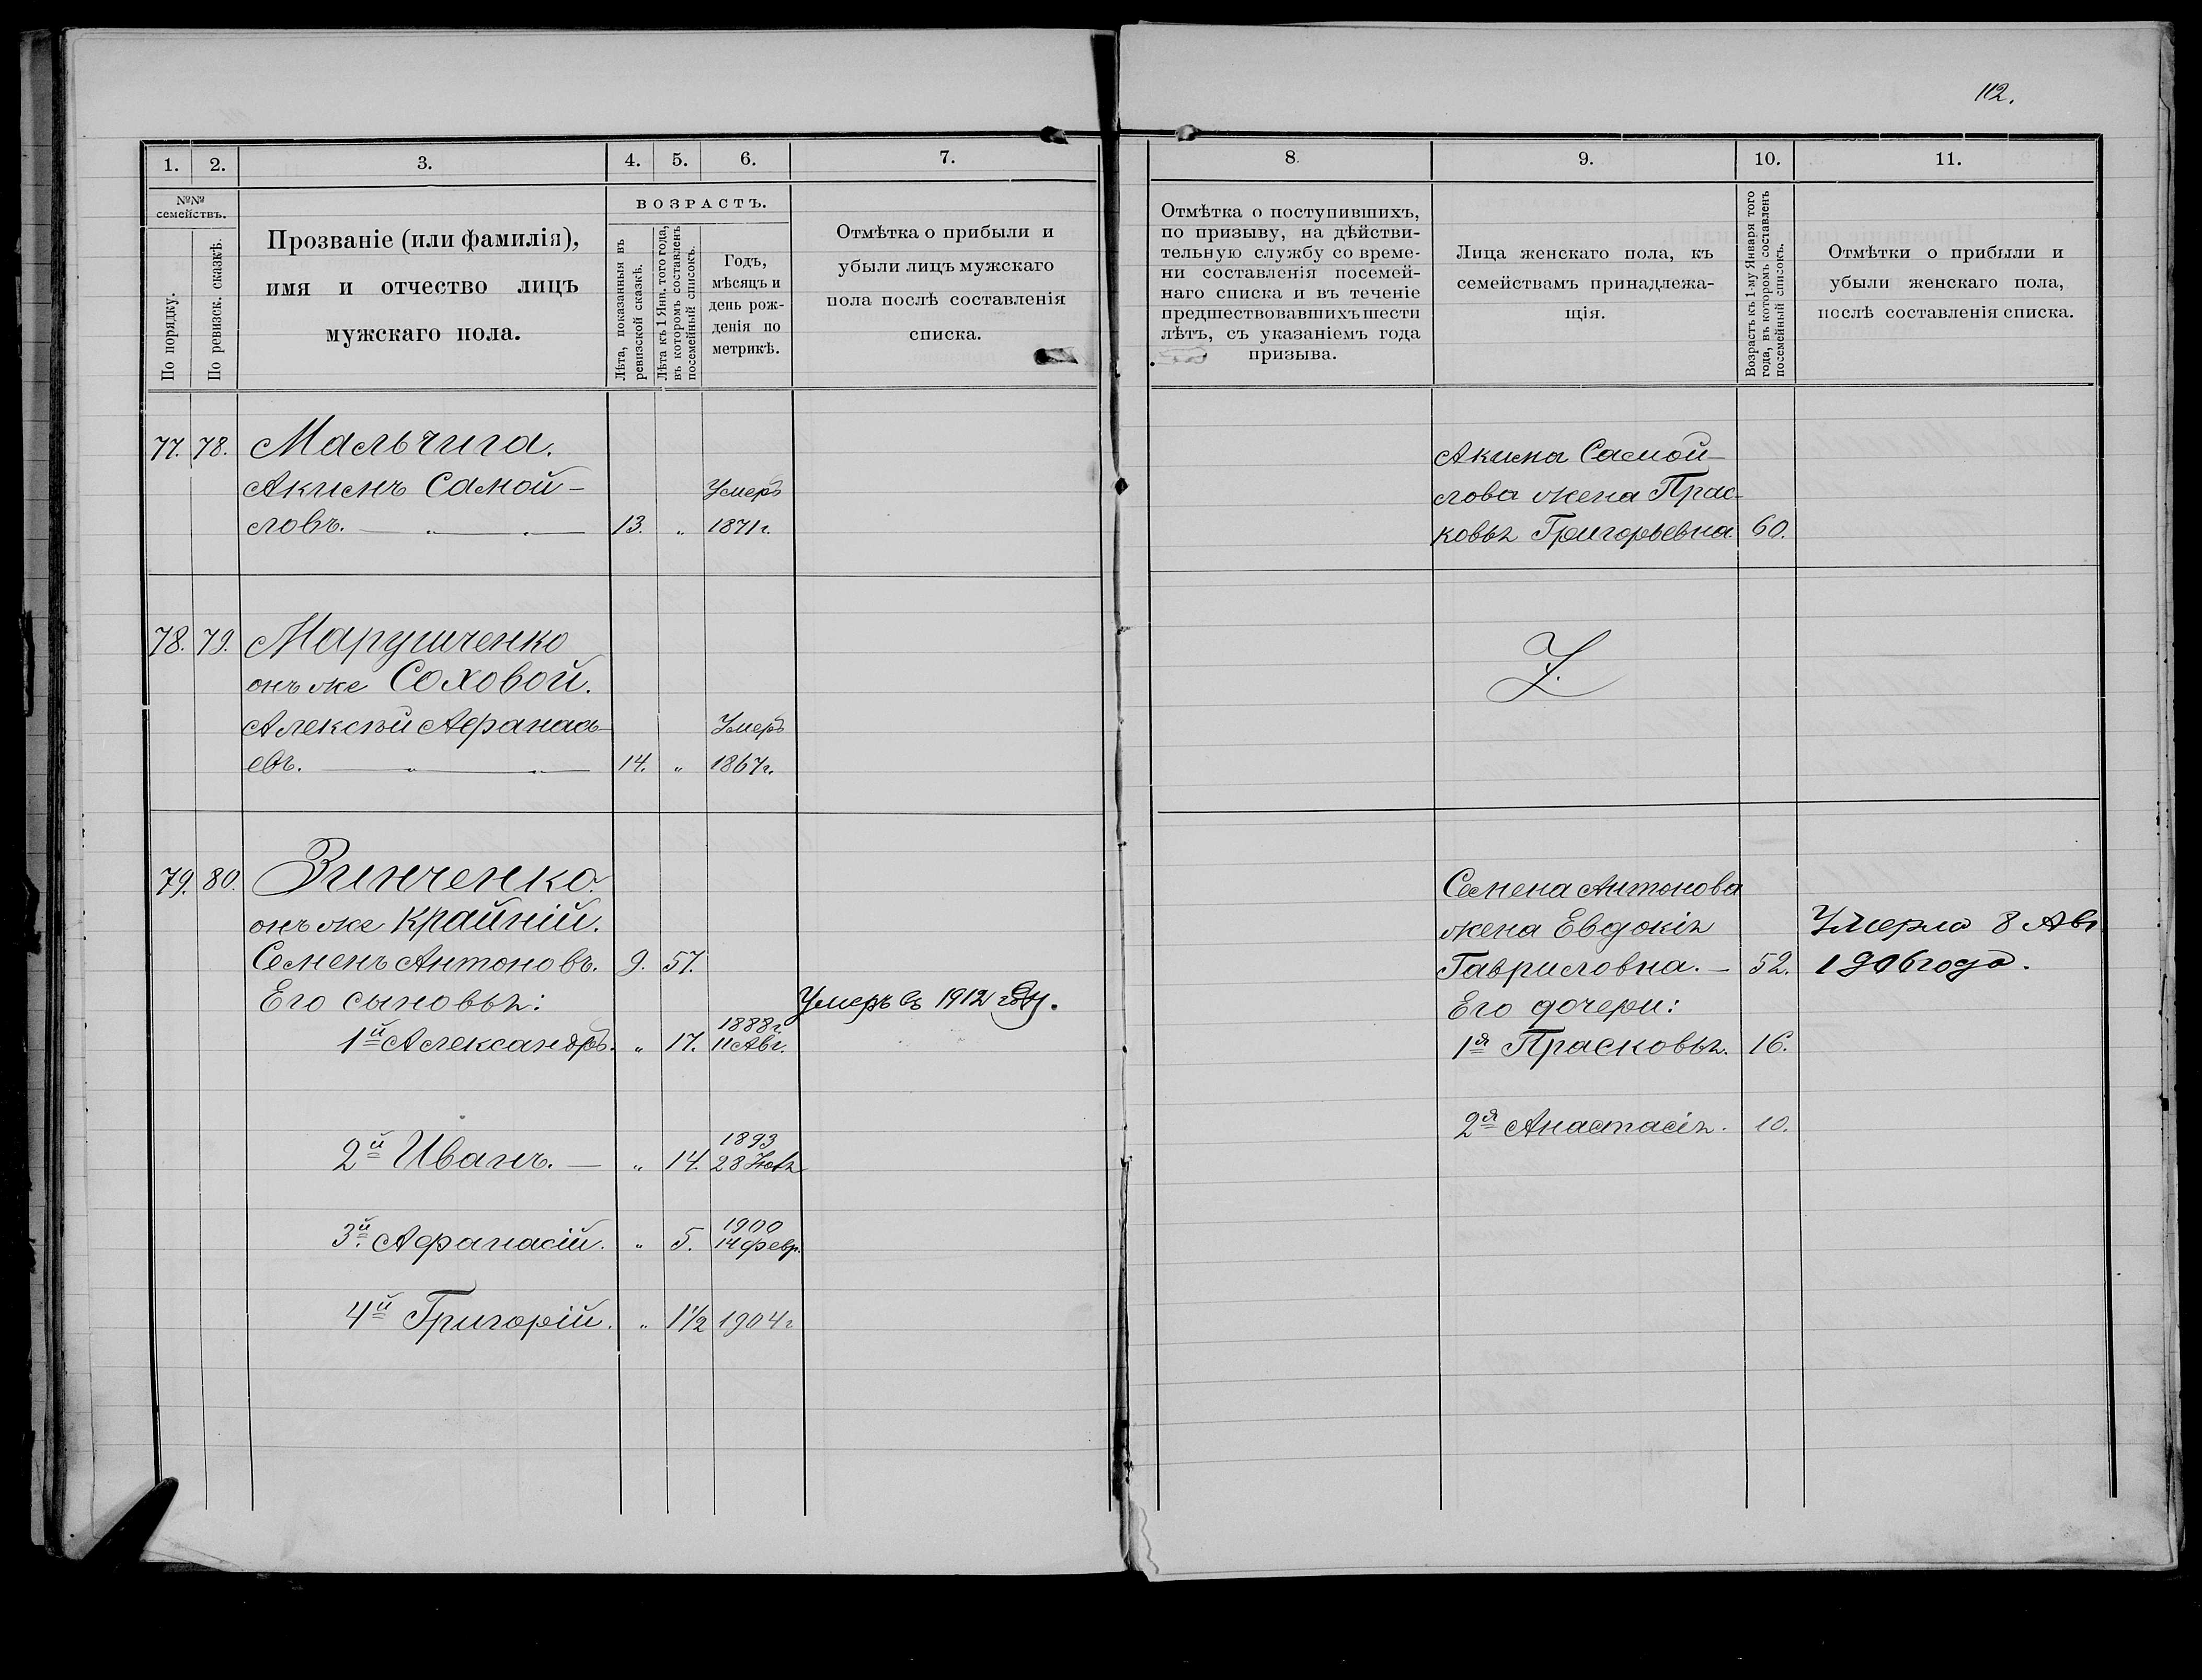 112.
1. 2. 3. 4. 5. 6. 7.
№№ семействъ.
По порядку.
По ревизск. сказкѣ.
Прозваніе (или фамилія),
имя и отчество лицъ
мужскаго пола.
ВОЗРАСТЪ.
Лѣта, показанныя въ
ревизской сказкѣ.
Лѣта къ 1 Янв. того года,
въ которомъ составленъ
посемейный списокъ.
Годъ,
мѣсяцъ и
день рож-
денія по
метрикѣ.
Отмѣтка о прибыли и
убыли лицъ мужскаго
пола послѣ составленія
списка.
77. 78. Мальчига.
Акимъ Самой- Умеръ
ловъ. 13. „ 1871 г.
78. 79. Марушченко
онъ же Соховой.
Алексѣй Афанась- Умеръ
евъ. 14. „ 1867 г.
79. 80. Зинченко.
онъ же Крайній.
Семенъ Антоновъ. 9. 57.
Его сыновья: Умеръ въ 1912 году.
1888 г.
1й Александръ. „ 17. 11 Авг.
1893
2й Иванъ. — „ 14. 28
1900
3й Афанасій. „ 5. 14 февр.
4й Григорій. „ 1½ 1904 г
8. 9. 10. 11.
Отмѣтка о поступившихъ,
по призыву, на дѣйстви-
тельную службу со време-
ни составленія посемей-
наго списка и въ теченіе
предшествовавшихъ шести
лѣтъ, съ указаніемъ года
призыва.
Лица женскаго пола, къ
семействамъ принадлежа-
щія.
Возрастъ къ 1-му Января того
года, въ которомъ составленъ
посемейный списокъ.
Отмѣтки о прибыли и
убыли женскаго пола,
послѣ составленія списка.
Акима Самой-
лова жена Прас-
ковья Григорьевна. 60.
Z.
Семена Антонова
жена Евдокія Умерла 8 Авг
Гавриловна. — 52. 1906 года.
Его дочери:
1я Прасковья. 16.
2я Анастасія. 10.